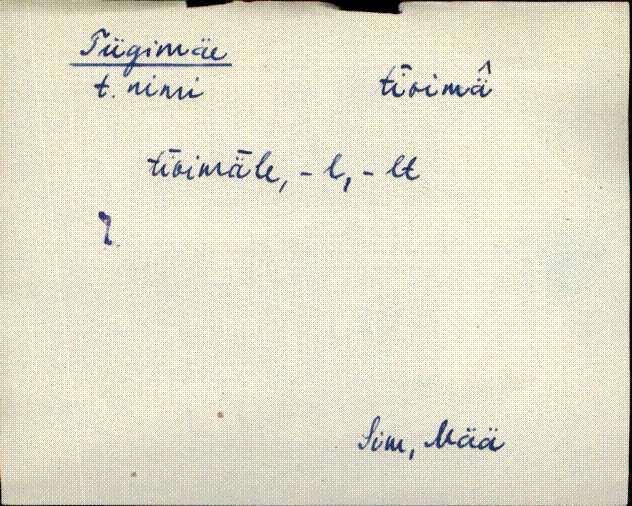 Tiigimäe
t. nimi tīoimä̂
tīoimäle, -l, -lt
Sim, Mää